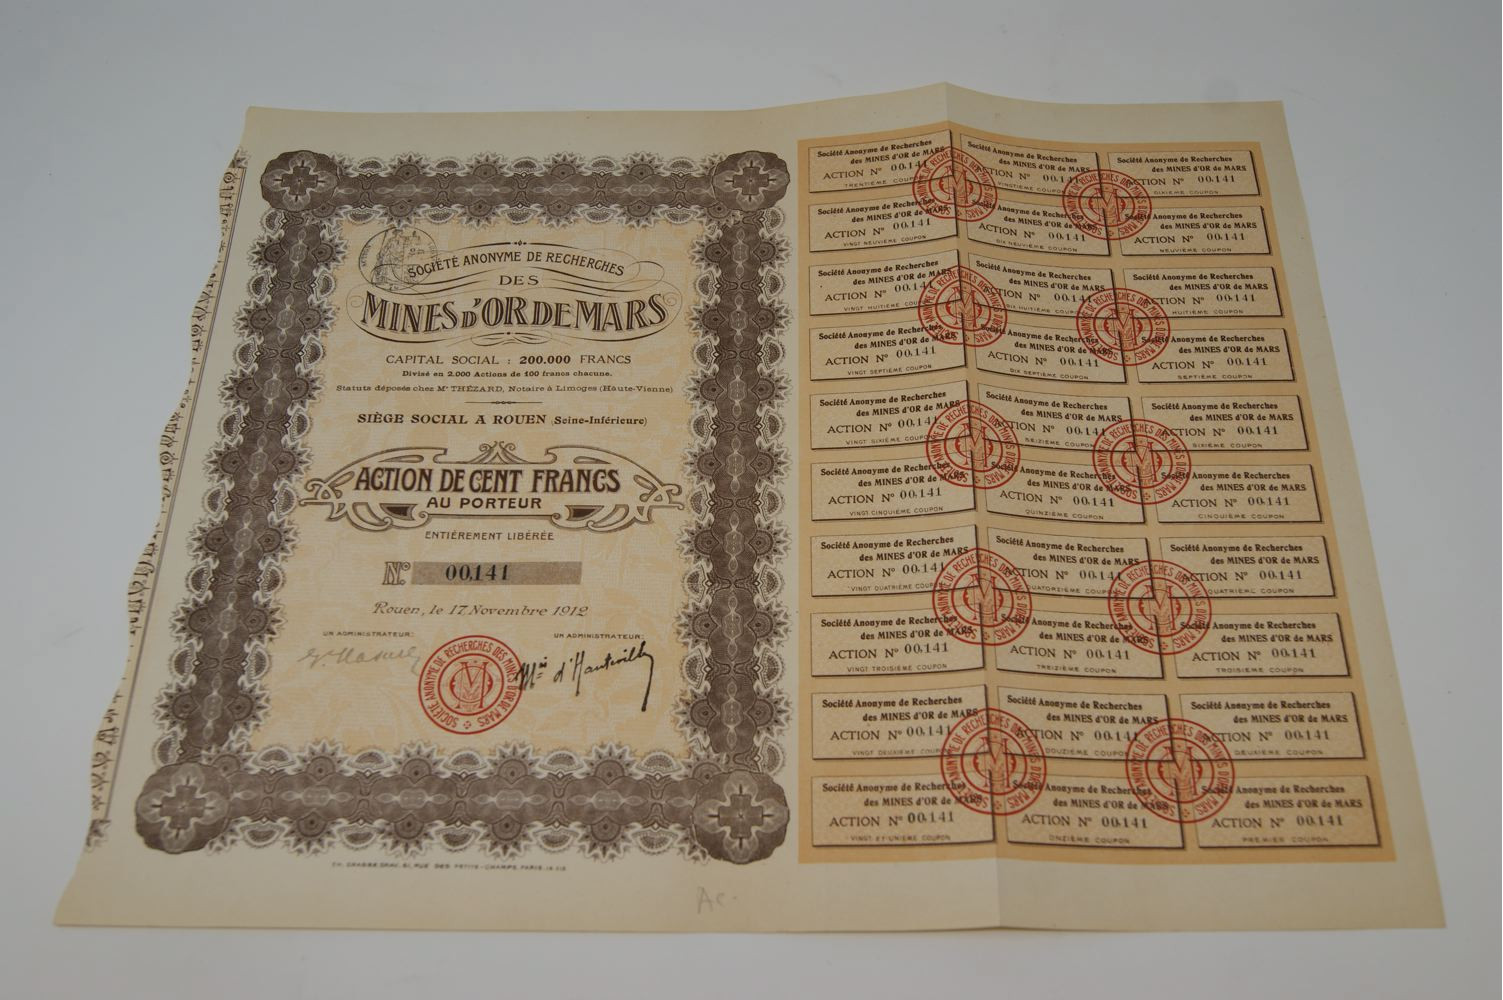 SOCIÉTÉ ANONYME DE RECHERCHES
DES
MINES D'OR DE MARS
CAPITAL SOCIAL : 200.000 FRANCS
Divisé en 2.000 Actions de 100 francs chacune.
Statuts déposés chez Me THÉZARD, Notaire à Limoges (Haute-Vienne)
SIÈGE SOCIAL A ROUEN (Seine-Inférieure)
ACTION DE CENT FRANCS
AU PORTEUR
ENTIÈREMENT LIBÉRÉE
No 00,141
Rouen, le 17 Novembre 1912
UN ADMINISTRATEUR: UN ADMINISTRATEUR:
Mis d'Hauteville
SOCIÉTÉ ANONYME DE RECHERCHES DES MINES D'OR DE MARS
RUE DES PETITS-CHAMPS, PARIS
Ac.
Société Anonyme de Recherches
des MINES d'OR de MARS
ACTION No 00.141
TRENTIÈME COUPON
Société Anonyme de Recherches
des MINES d'OR de MARS
ACTION No 00.141
VINGTIÈME COUPON
Société Anonyme de Recherches
des MINES d'OR de MARS
ACTION No 00.141
DIXIÈME COUPON
Société Anonyme de Recherches
des MINES d'OR de MARS
ACTION No 00.141
VINGT NEUVIÈME COUPON
Société Anonyme de Recherches
des MINES d'OR de MARS
ACTION No 00.141
DIX NEUVIÈME COUPON
Société Anonyme de Recherches
des MINES d'OR de MARS
ACTION No 00.141
NEUVIÈME COUPON
Société Anonyme de Recherches
des MINES d'OR de MARS
ACTION No 00.141
VINGT HUITIÈME COUPON
Société Anonyme de Recherches
des MINES d'OR de MARS
ACTION No 00.141
DIX HUITIÈME COUPON
Société Anonyme de Recherches
des MINES d'OR de MARS
ACTION No 00.141
HUITIÈME COUPON
Société Anonyme de Recherches
des MINES d'OR de MARS
ACTION No 00.141
VINGT SEPTIÈME COUPON
Société Anonyme de Recherches
des MINES d'OR de MARS
ACTION No 00.141
DIX SEPTIÈME COUPON
Société Anonyme de Recherches
des MINES d'OR de MARS
ACTION No 00.141
SEPTIÈME COUPON
Société Anonyme de Recherches
des MINES d'OR de MARS
ACTION No 00.141
VINGT SIXIÈME COUPON
Société Anonyme de Recherches
des MINES d'OR de MARS
ACTION No 00.141
SEIZIÈME COUPON
Société Anonyme de Recherches
des MINES d'OR de MARS
ACTION No 00.141
SIXIÈME COUPON
Société Anonyme de Recherches
des MINES d'OR de MARS
ACTION No 00.141
VINGT CINQUIÈME COUPON
Société Anonyme de Recherches
des MINES d'OR de MARS
ACTION No 00.141
QUINZIÈME COUPON
Société Anonyme de Recherches
des MINES d'OR de MARS
ACTION No 00.141
CINQUIÈME COUPON
Société Anonyme de Recherches
des MINES d'OR de MARS
ACTION No 00.141
VINGT QUATRIÈME COUPON
Société Anonyme de Recherches
des MINES d'OR de MARS
ACTION No 00.141
QUATORZIÈME COUPON
Société Anonyme de Recherches
des MINES d'OR de MARS
ACTION No 00.141
QUATRIÈME COUPON
Société Anonyme de Recherches
des MINES d'OR de MARS
ACTION No 00.141
VINGT TROISIÈME COUPON
Société Anonyme de Recherches
des MINES d'OR de MARS
ACTION No 00.141
TREIZIÈME COUPON
Société Anonyme de Recherches
des MINES d'OR de MARS
ACTION No 00.141
TROISIÈME COUPON
Société Anonyme de Recherches
des MINES d'OR de MARS
ACTION No 00.141
VINGT DEUXIÈME COUPON
Société Anonyme de Recherches
des MINES d'OR de MARS
ACTION No 00.141
DOUZIÈME COUPON
Société Anonyme de Recherches
des MINES d'OR de MARS
ACTION No 00.141
DEUXIÈME COUPON
Société Anonyme de Recherches
des MINES d'OR de MARS
ACTION No 00.141
VINGT ET UNIÈME COUPON
Société Anonyme de Recherches
des MINES d'OR de MARS
ACTION No 00.141
ONZIÈME COUPON
Société Anonyme de Recherches
des MINES d'OR de MARS
ACTION No 00.141
PREMIER COUPON